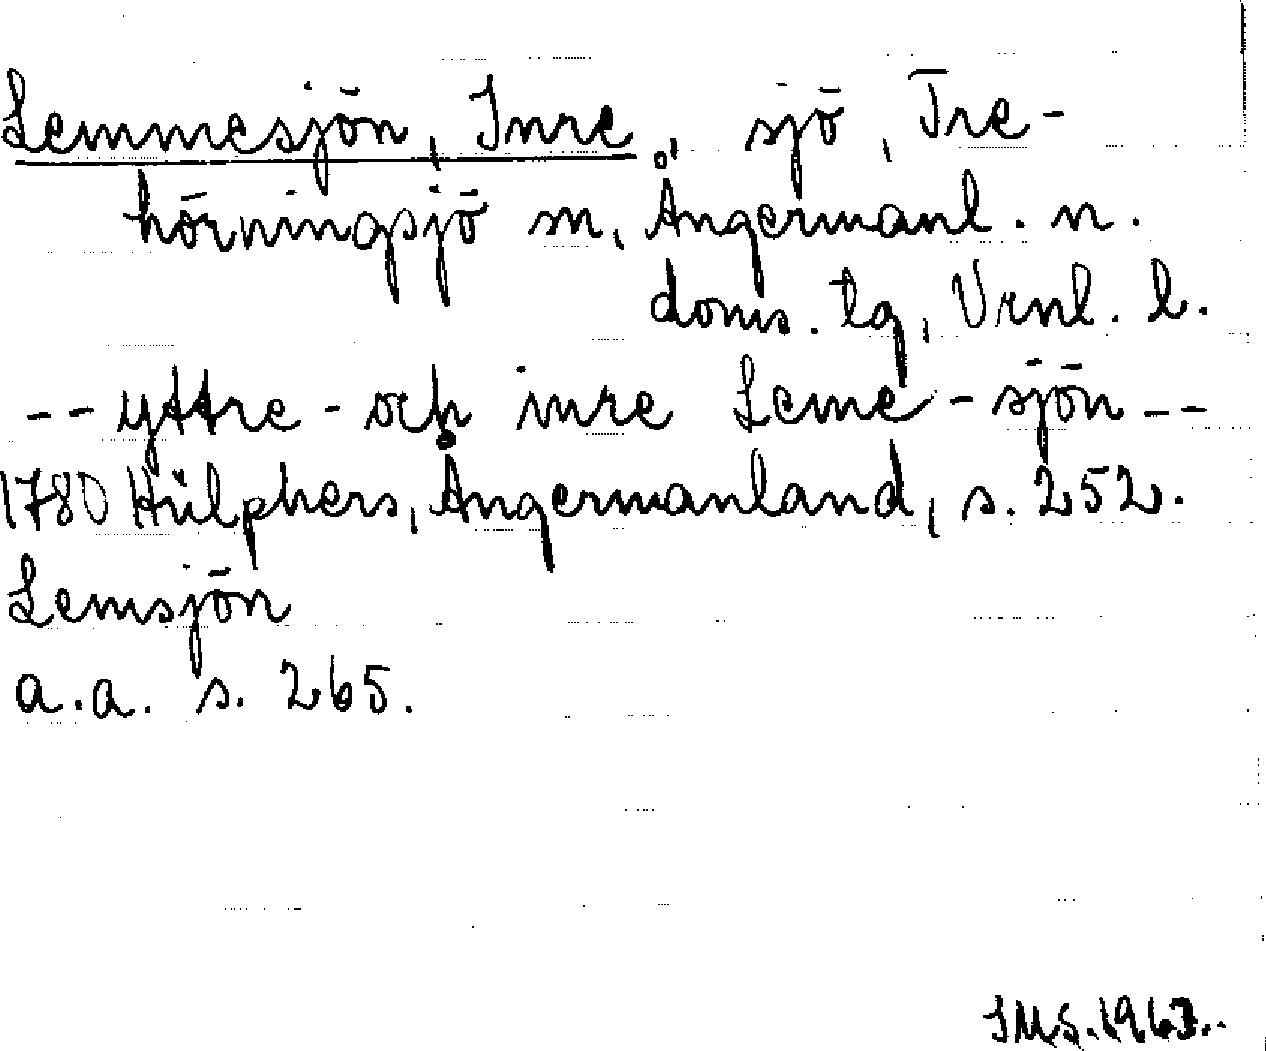 Lemmesjön, Inre, sjö, Tre-
hörningsjö sn, Ångermanl. n.
doms. lg, Vrnl. l.
-- yttre - och inre Leme - sjön --
1780 Hülphers, Ångermanland, s. 252.
Lemsjön
a.a. s. 265.
IMS. 1963.